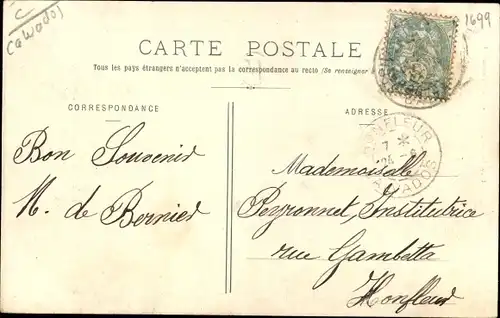 C
Calvados
1699
CARTE POSTALE
Tous les pays étrangers n'acceptent pas la correspondance au recto (Se renseigner à
CORRESPONDANCE
ADRESSE
HONFLEUR
CALVADOS
Bon Souvenir
M. de Bernier
Mademoiselle
Peyronnet, Institutrice
rue Gambetta
Honfleur